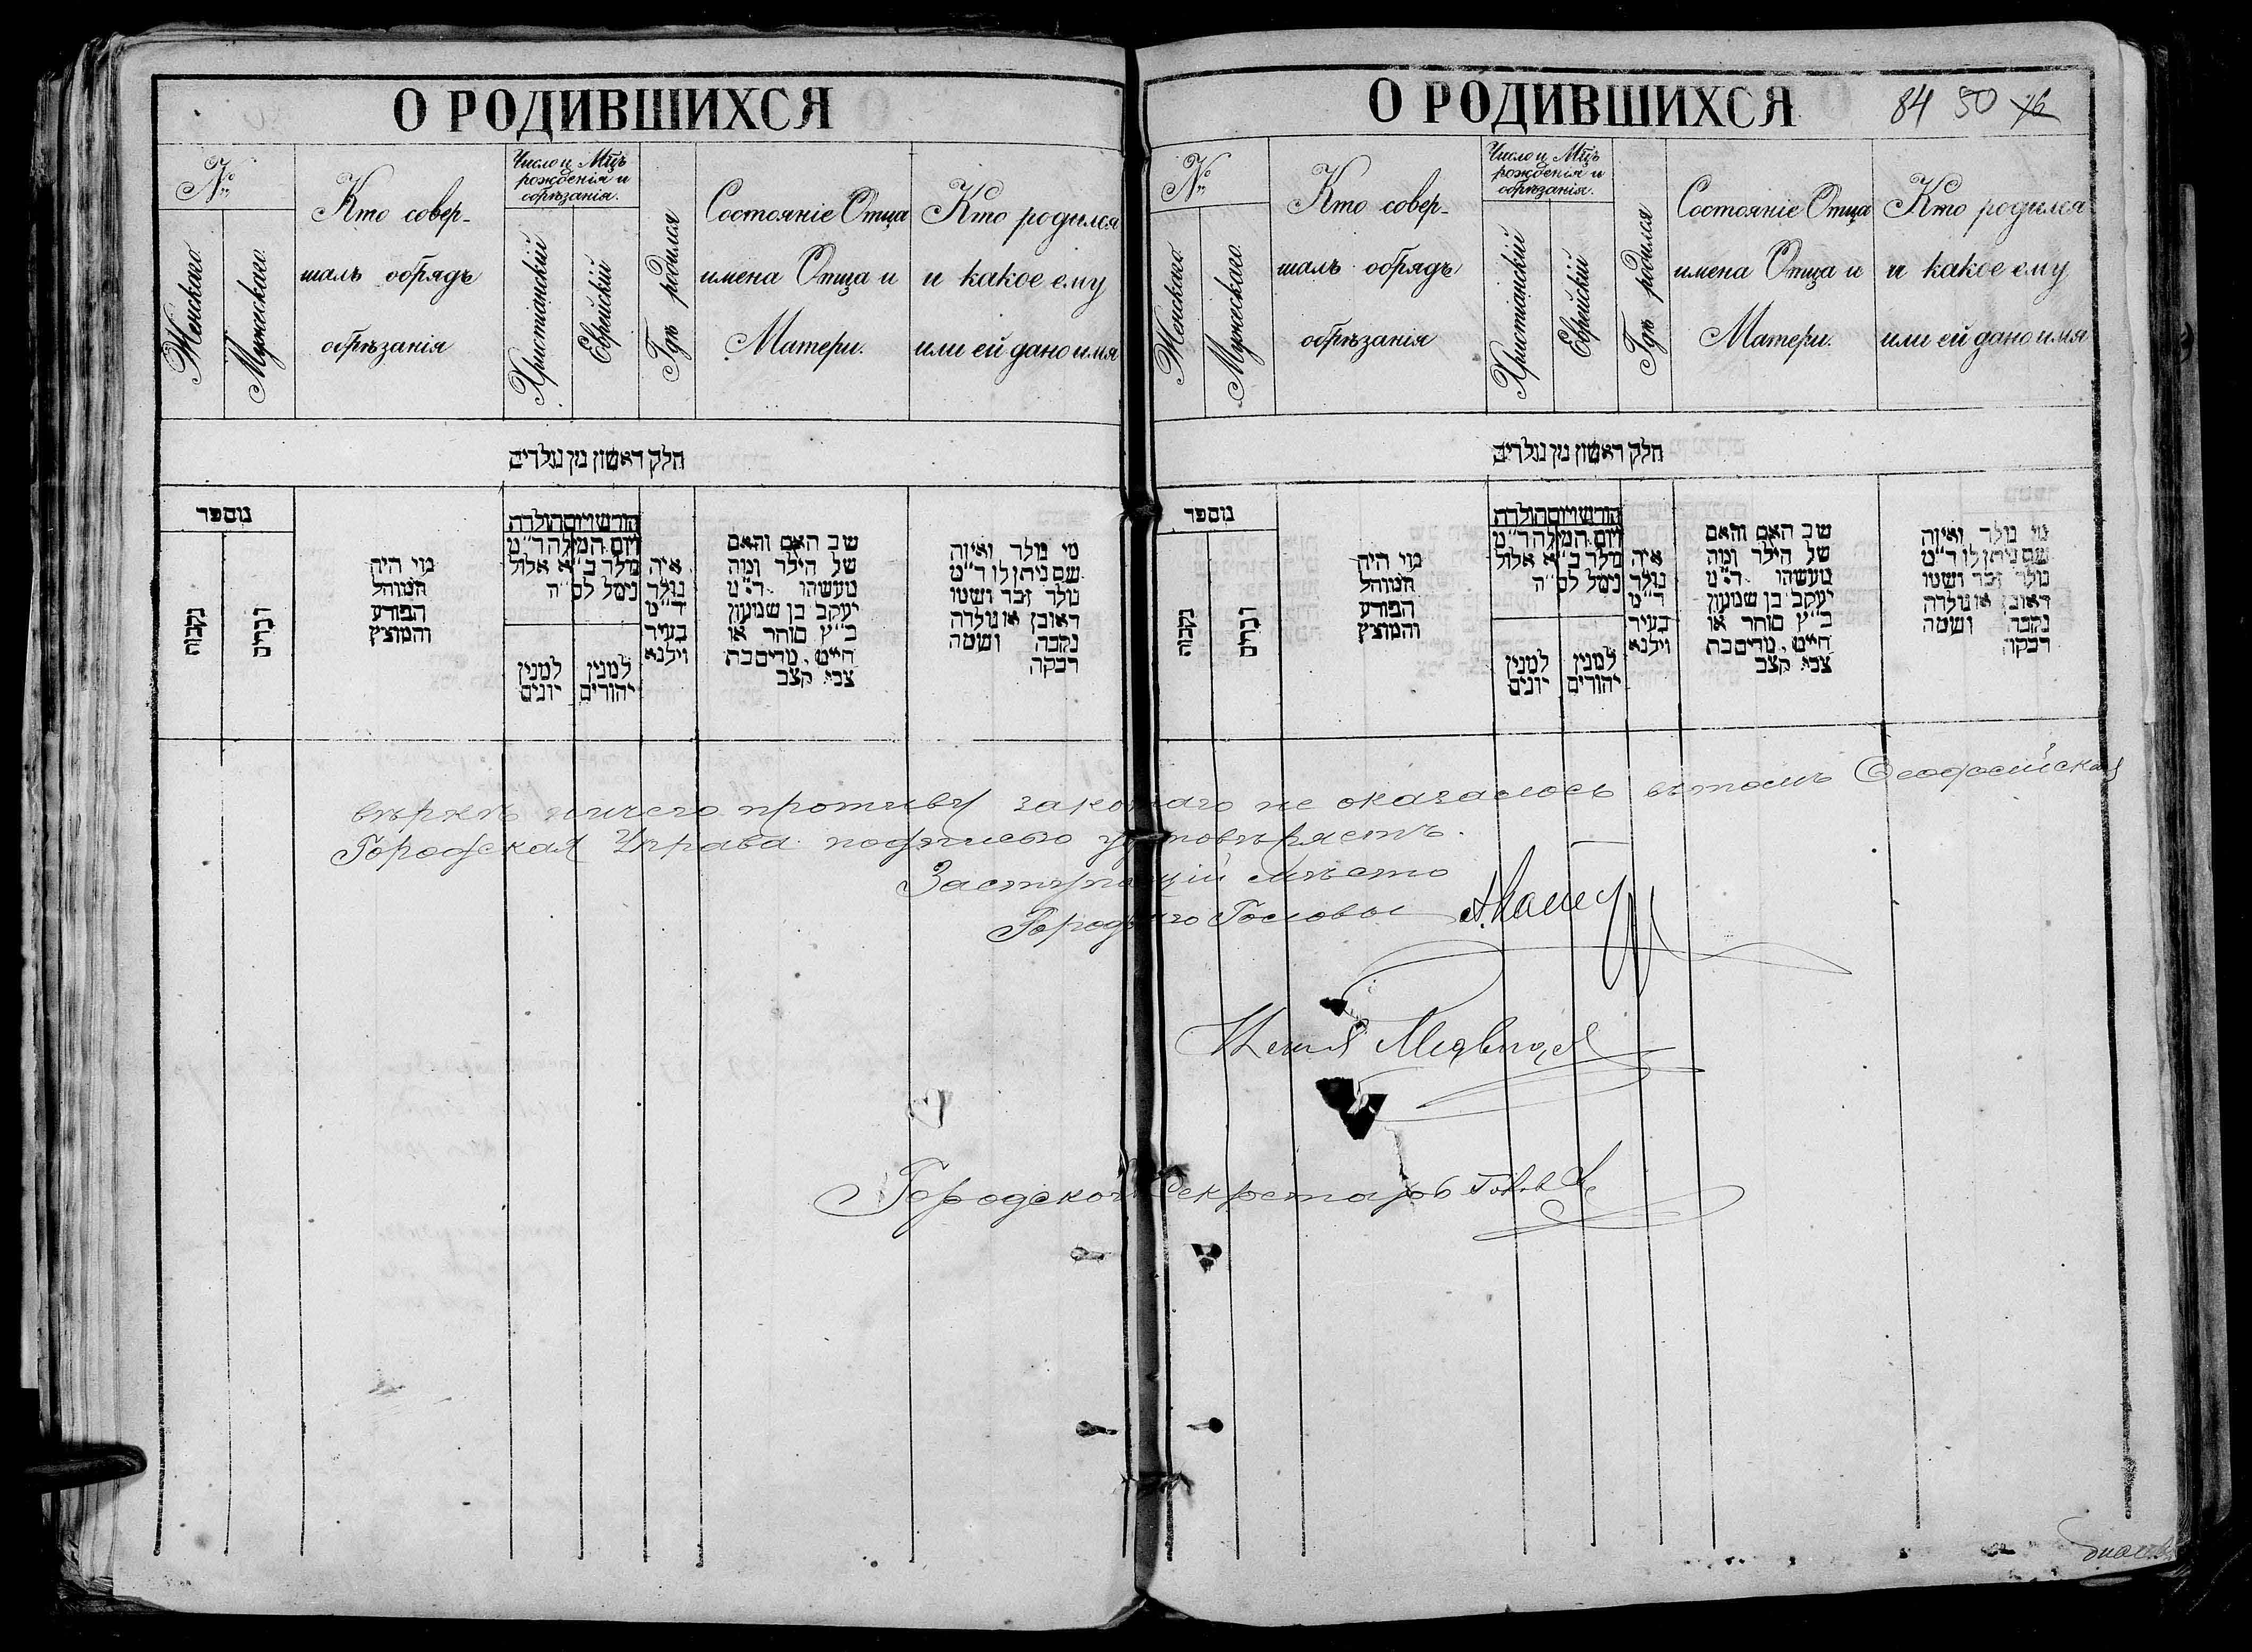 О РОДИВШИХСЯ
№
Женскаго
Мужескаго
Кто совер-
шалъ обрядъ
обрѣзанія
Число и Мцъ
рожденія и
обрѣзанія.
Христіанскій
Еврейскій
Гдѣ родился
Состояніе Отца
имена Отца и
Матери.
Кто родился
и какое ему
или ей дано имя
חלק ראשון מן נולדים
מספר
נקבות
זכרים
מי היה
המוהל
הפורע
והמוצץ
חודש ויום הולדת
ויום המילה ד״מ
נולד ב״א אלול
נימל לס״ה
למנין
יונים
למנין
יהודים
איה
נולד
ד״מ
בעיר
וילנא
שב האם והאם
של הילד ומה
מעשהו ד״מ
יעקב בן שמעון
כ״ץ סוחר או
חייט, מרים בת
צבי קצב
מי נולד ואיזה
שם ניתן לו ד״מ
נולד זכר ושמו
ראובן או נולדה
נקבה ושמה
רבקה
О РОДИВШИХСЯ
84 50 76
№
Женскаго
Мужескаго
Кто совер-
шалъ обрядъ
обрѣзанія
Число и Мцъ
рожденія и
обрѣзанія.
Христіанскій
Еврейскій
Гдѣ родился
Состояніе Отца
имена Отца и
Матери.
Кто родился
и какое ему
или ей дано имя
חלק ראשון מן נולדים
מספר
נקבות
זכרים
מי היה
המוהל
הפורע
והמוצץ
חודש ויום הולדת
ויום המילה ד״מ
נולד ב״א אלול
נימל לס״ה
למנין
יונים
למנין
יהודים
איה
נולד
ד״מ
בעיר
וילנא
שב האם והאם
של הילד ומה
מעשהו ד״מ
יעקב בן שמעון
כ״ץ סוחר או
חייט, מרים בת
צבי קצב
מי נולד ואיזה
שם ניתן לו ד״מ
נולד זכר ושמו
ראובן או נולדה
נקבה ושמה
רבקה
вѣркѣ ничего противу законаго не оказалось вътомъ Ѳеодосійская
Городская Управа подписью удостовѣряетъ.
Заступающій мѣсто
Городского Головы
Городской Секретарь